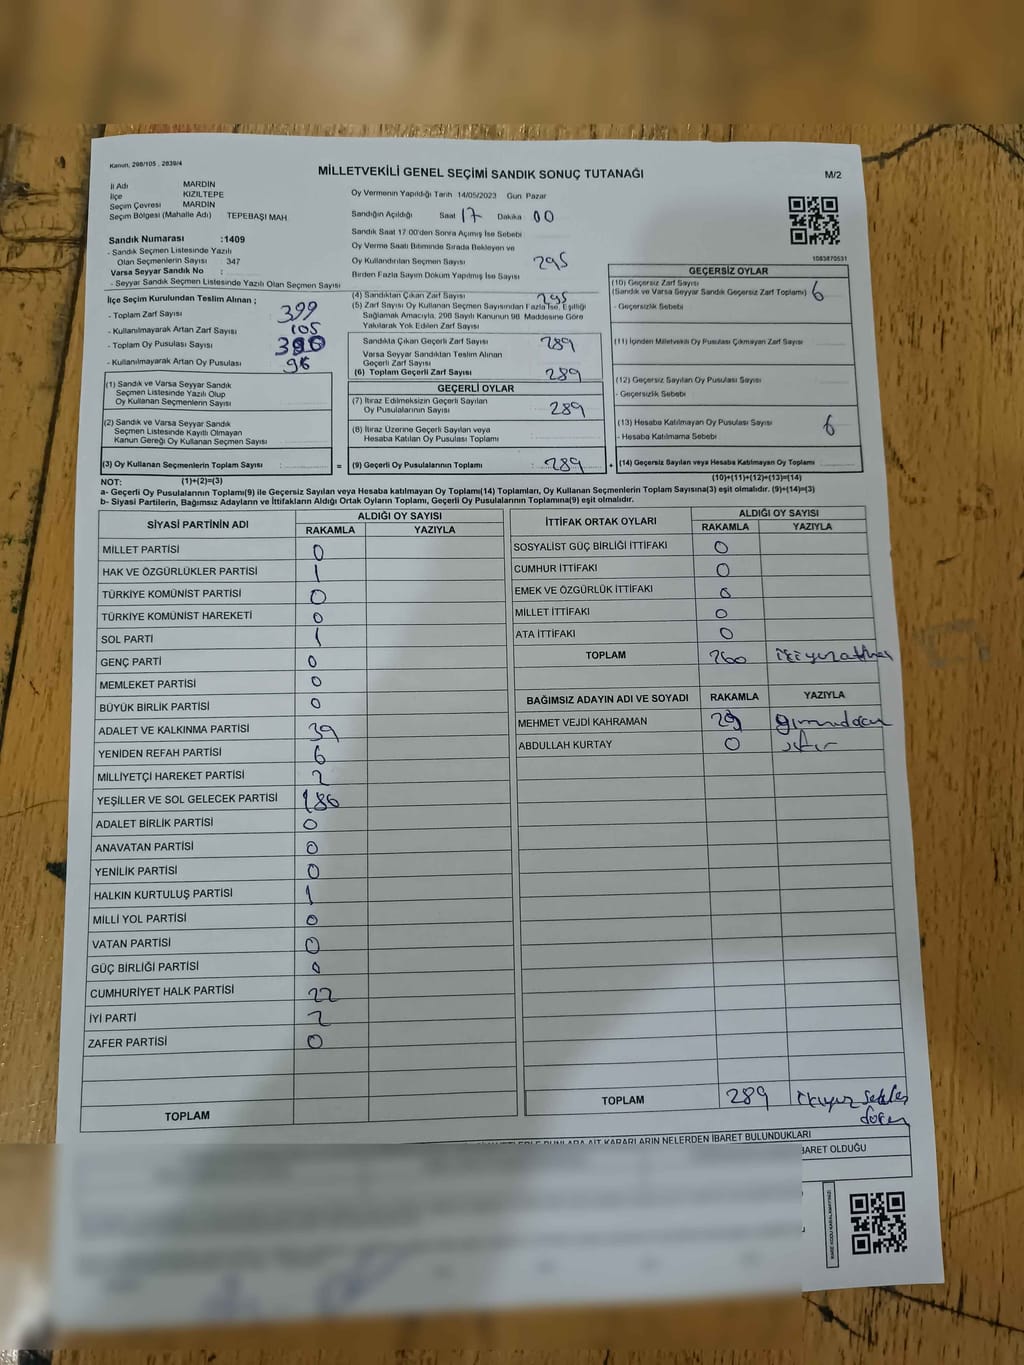 Kanun, 298/105 , 2839/4
MİLLETVEKİLİ GENEL SEÇİMİ SANDIK SONUÇ TUTANAĞI
M/2
İl Adı MARDİN
İlçe KIZILTEPE
Seçim Çevresi MARDİN
Seçim Bölgesi (Mahalle Adı) TEPEBAŞI MAH.
Sandık Numarası :1409
- Sandık Seçmen Listesinde Yazılı
Olan Seçmenlerin Sayısı : 347
Varsa Seyyar Sandık No :
- Seyyar Sandık Seçmen Listesinde Yazılı Olan Seçmen Sayısı
Oy Vermenin Yapıldığı Tarih 14/05/2023 Gün Pazar
Sandığın Açıldığı Saat 17 Dakika 00
Sandık Saat 17.00'den Sonra Açılmış İse Sebebi
Oy Verme Saati Bitiminde Sırada Bekleyen ve
Oy Kullandırılan Seçmen Sayısı 295
Birden Fazla Sayım Döküm Yapılmış İse Sayısı
1083870531
İlçe Seçim Kurulundan Teslim Alınan ;
- Toplam Zarf Sayısı 399
- Kullanılmayarak Artan Zarf Sayısı 105
- Toplam Oy Pusulası Sayısı
- Kullanılmayarak Artan Oy Pusulası 96
(1) Sandık ve Varsa Seyyar Sandık
Seçmen Listesinde Yazılı Olup
Oy Kullanan Seçmenlerin Sayısı
(2) Sandık ve Varsa Seyyar Sandık
Seçmen Listesinde Kayıtlı Olmayan
Kanun Gereği Oy Kullanan Seçmen Sayısı
(3) Oy Kullanan Seçmenlerin Toplam Sayısı :
(4) Sandıktan Çıkan Zarf Sayısı 295
(5) Zarf Sayısı Oy Kullanan Seçmen Sayısından Fazla İse, Eşitliği
Sağlamak Amacıyla, 298 Sayılı Kanunun 98. Maddesine Göre
Yakılarak Yok Edilen Zarf Sayısı
Sandıkta Çıkan Geçerli Zarf Sayısı 289
Varsa Seyyar Sandıktan Teslim Alınan
Geçerli Zarf Sayısı
(6) Toplam Geçerli Zarf Sayısı 289
GEÇERLİ OYLAR
(7) İtiraz Edilmeksizin Geçerli Sayılan
Oy Pusulalarının Sayısı 289
(8) İtiraz Üzerine Geçerli Sayılan veya
Hesaba Katılan Oy Pusulası Toplamı
= (9) Geçerli Oy Pusulalarının Toplamı : 289 +
GEÇERSİZ OYLAR
(10) Geçersiz Zarf Sayısı
(Sandık ve Varsa Seyyar Sandık Geçersiz Zarf Toplamı) 6
- Geçersizlik Sebebi
(11) İçinden Milletvekili Oy Pusulası Çıkmayan Zarf Sayısı
(12) Geçersiz Sayılan Oy Pusulası Sayısı
- Geçersizlik Sebebi
(13) Hesaba Katılmayan Oy Pusulası Sayısı 6
- Hesaba Katılmama Sebebi
(14) Geçersiz Sayılan veya Hesaba Katılmayan Oy Toplamı
NOT: (1)+(2)=(3) (10)+(11)+(12)+(13)=(14)
a- Geçerli Oy Pusulalarının Toplamı(9) ile Geçersiz Sayılan veya Hesaba katılmayan Oy Toplamı(14) Toplamları, Oy Kullanan Seçmenlerin Toplam Sayısına(3) eşit olmalıdır. (9)+(14)=(3)
b- Siyasi Partilerin, Bağımsız Adayların ve İttifakların Aldığı Ortak Oyların Toplamı, Geçerli Oy Pusulalarının Toplamına(9) eşit olmalıdır.
SİYASİ PARTİNİN ADI ALDIĞI OY SAYISI
RAKAMLA YAZIYLA
MİLLET PARTİSİ 0
HAK VE ÖZGÜRLÜKLER PARTİSİ 1
TÜRKİYE KOMÜNİST PARTİSİ 0
TÜRKİYE KOMÜNİST HAREKETİ 0
SOL PARTİ 1
GENÇ PARTİ 0
MEMLEKET PARTİSİ 0
BÜYÜK BİRLİK PARTİSİ 0
ADALET VE KALKINMA PARTİSİ 39
YENİDEN REFAH PARTİSİ 6
MİLLİYETÇİ HAREKET PARTİSİ 2
YEŞİLLER VE SOL GELECEK PARTİSİ 186
ADALET BİRLİK PARTİSİ 0
ANAVATAN PARTİSİ 0
YENİLİK PARTİSİ 0
HALKIN KURTULUŞ PARTİSİ 1
MİLLİ YOL PARTİSİ 0
VATAN PARTİSİ 0
GÜÇ BİRLİĞİ PARTİSİ 0
CUMHURİYET HALK PARTİSİ 22
İYİ PARTİ 2
ZAFER PARTİSİ 0
TOPLAM
İTTİFAK ORTAK OYLARI ALDIĞI OY SAYISI
RAKAMLA YAZIYLA
SOSYALİST GÜÇ BİRLİĞİ İTTİFAKI 0
CUMHUR İTTİFAKI 0
EMEK VE ÖZGÜRLÜK İTTİFAKI 0
MİLLET İTTİFAKI 0
ATA İTTİFAKI 0
TOPLAM 260
BAĞIMSIZ ADAYIN ADI VE SOYADI RAKAMLA YAZIYLA
MEHMET VEJDİ KAHRAMAN 29
ABDULLAH KURTAY 0 sıfır
TOPLAM 289 ikiyüz seksen
dokuz
BUNLARA AİT KARARLARIN NELERDEN İBARET BULUNDUKLARI
İBARET OLDUĞU